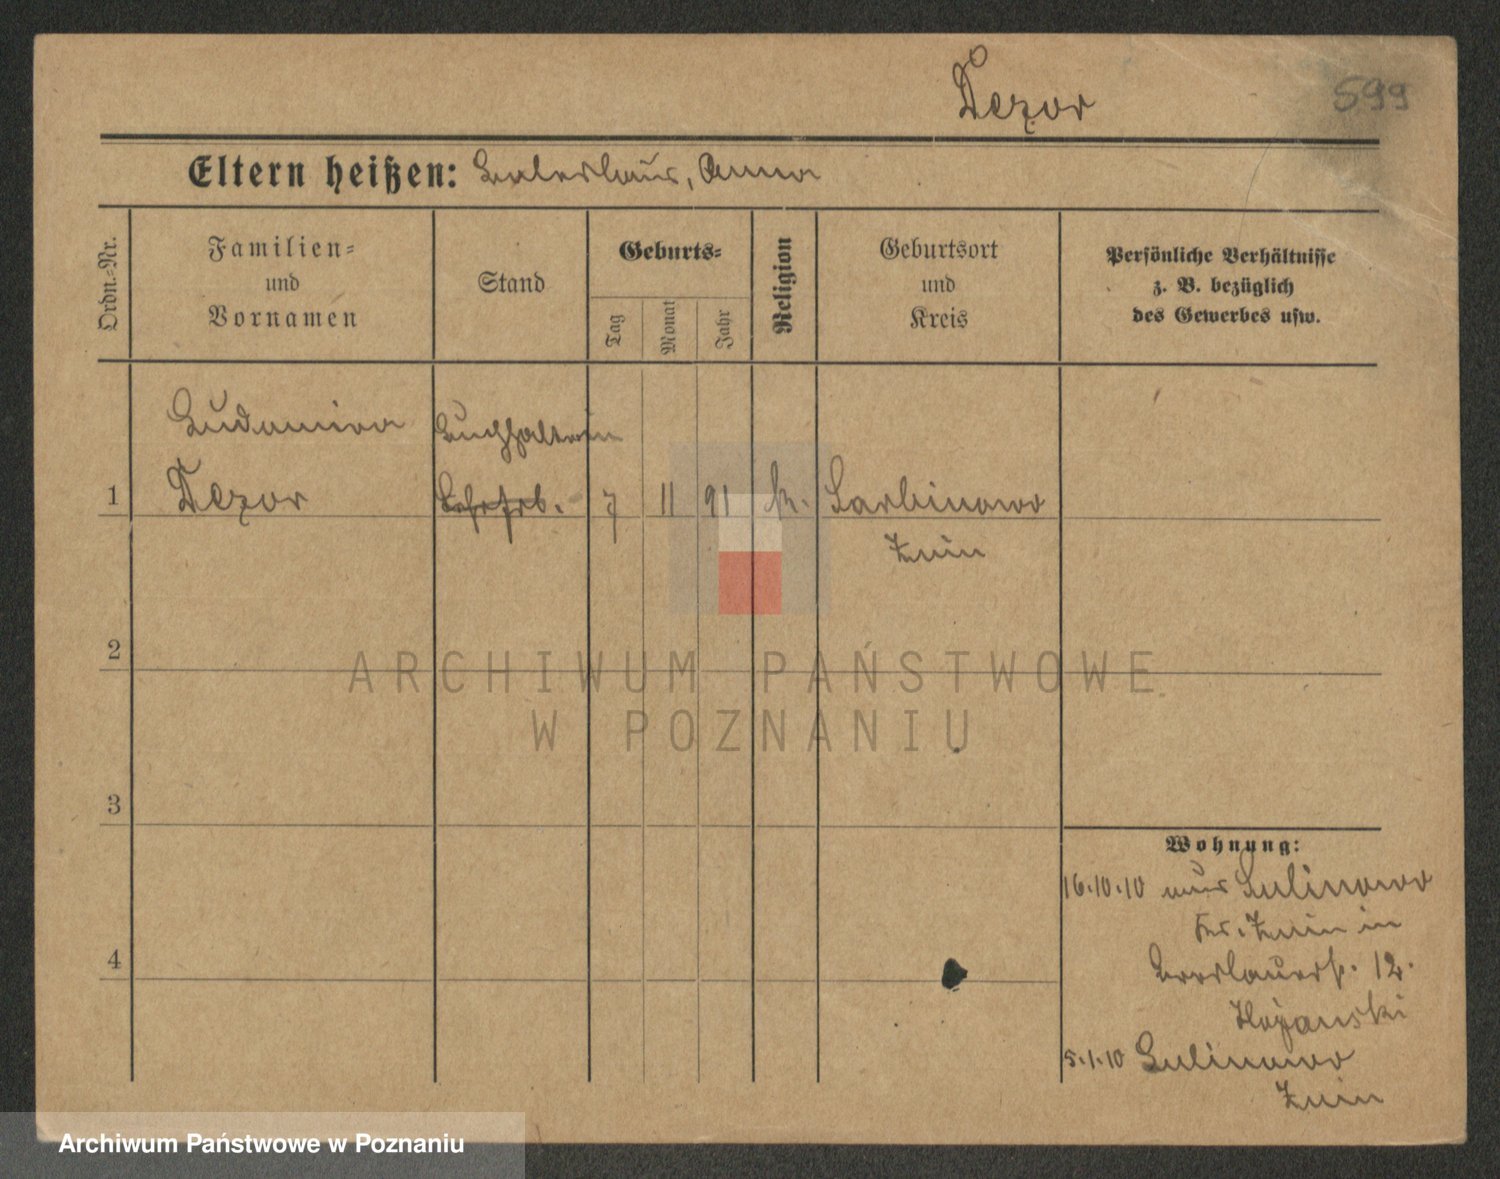 Dezor
599
Eltern heißen: Anna
Ordn.-Nr.
Familien-
und
Vornamen
Stand
Geburts-
Tag
Monat
Jahr
Religion
Geburtsort
und
Kreis
Persönliche Verhältnisse
z. B. bezüglich
des Gewerbes usw.
Ludomira
Buchhalterin
1 Dezor 7 11 91 k. Sarbinowo
Znin
2
3
4
Wohnung:
16.10.10 aus Sulinowo
Kr. Znin in
Breslauerst. 12.
5.1.10 Sulinowo
Znin
ARCHIWUM PAŃSTWOWE
W POZNANIU
Archiwum Państwowe w Poznaniu